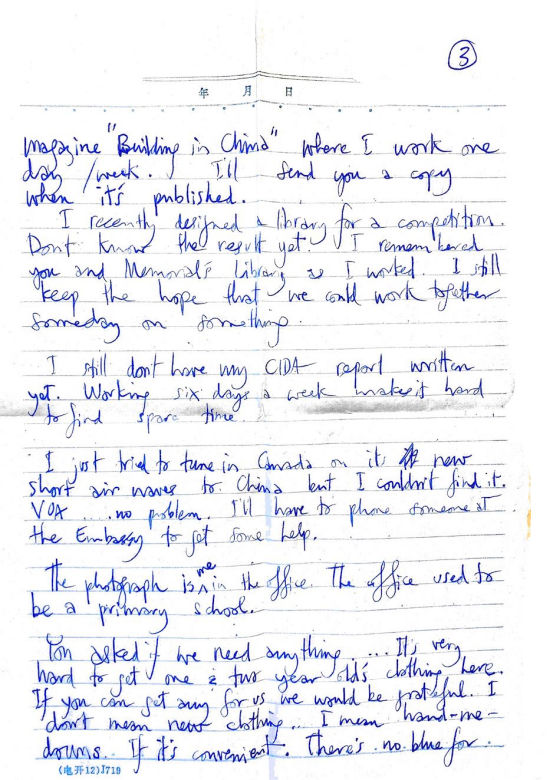 3
年 月 日
magazine "Building in China" where I work one
day /week. I'll send you a copy
when it's published.
I recently designed a library for a competition.
Dont know the result yet. I remembered
you and Memorial's Library as I worked. I still
keep the hope that we could work together
someday on something.
I still dont have my CIDA report written
yet. Working six days a week makes it hard
to find spare time
I just tried to tune in Canada on its new
short air waves to China but I couldn't find it.
VOA .... no problem. I'll have to phone someone at
the Embassy to get some help.
The photograph is me in the office. The office used to
be a primary school.
You asked if we need anything .... It's very
hard to get one & two year old's clothing here.
If you can get any for us we would be grateful. I
don't mean new clothing... I mean hand-me-
downs. If it's convenient. There's no blue for
(电开12)J719